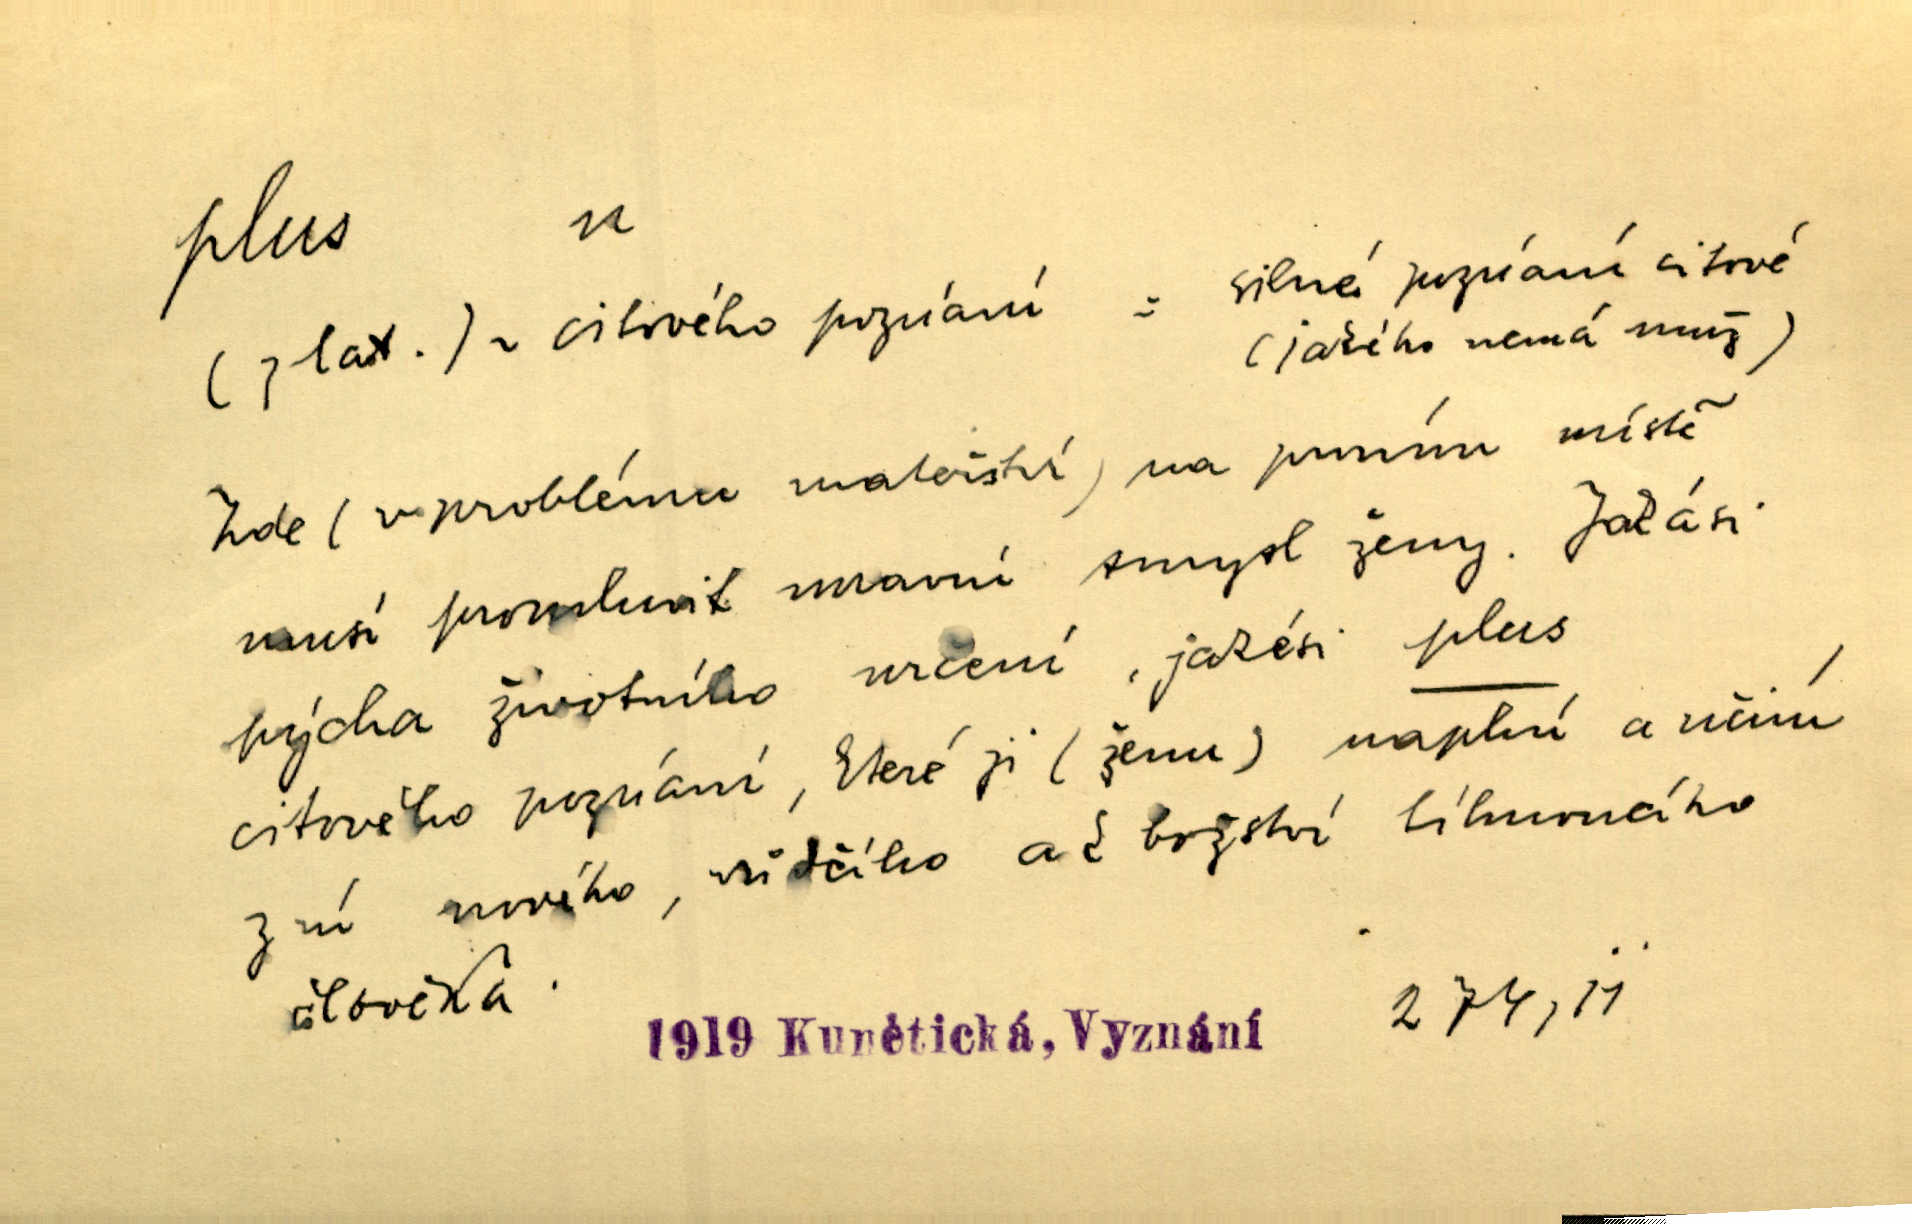 plus n
(z lat.) ~ citového poznání = silné poznání citové
(jakého nemá muž)
Zde (v problému mateřství) na prvním místě
musí promluvit mravní smysl ženy. Jakási
pýcha životního určení, jakési plus
citového poznání, které ji (ženu) naplní a učiní
z ní nového, vůdčího až božství
člověka.
1919 Kunětická, Vyznání 274, ij